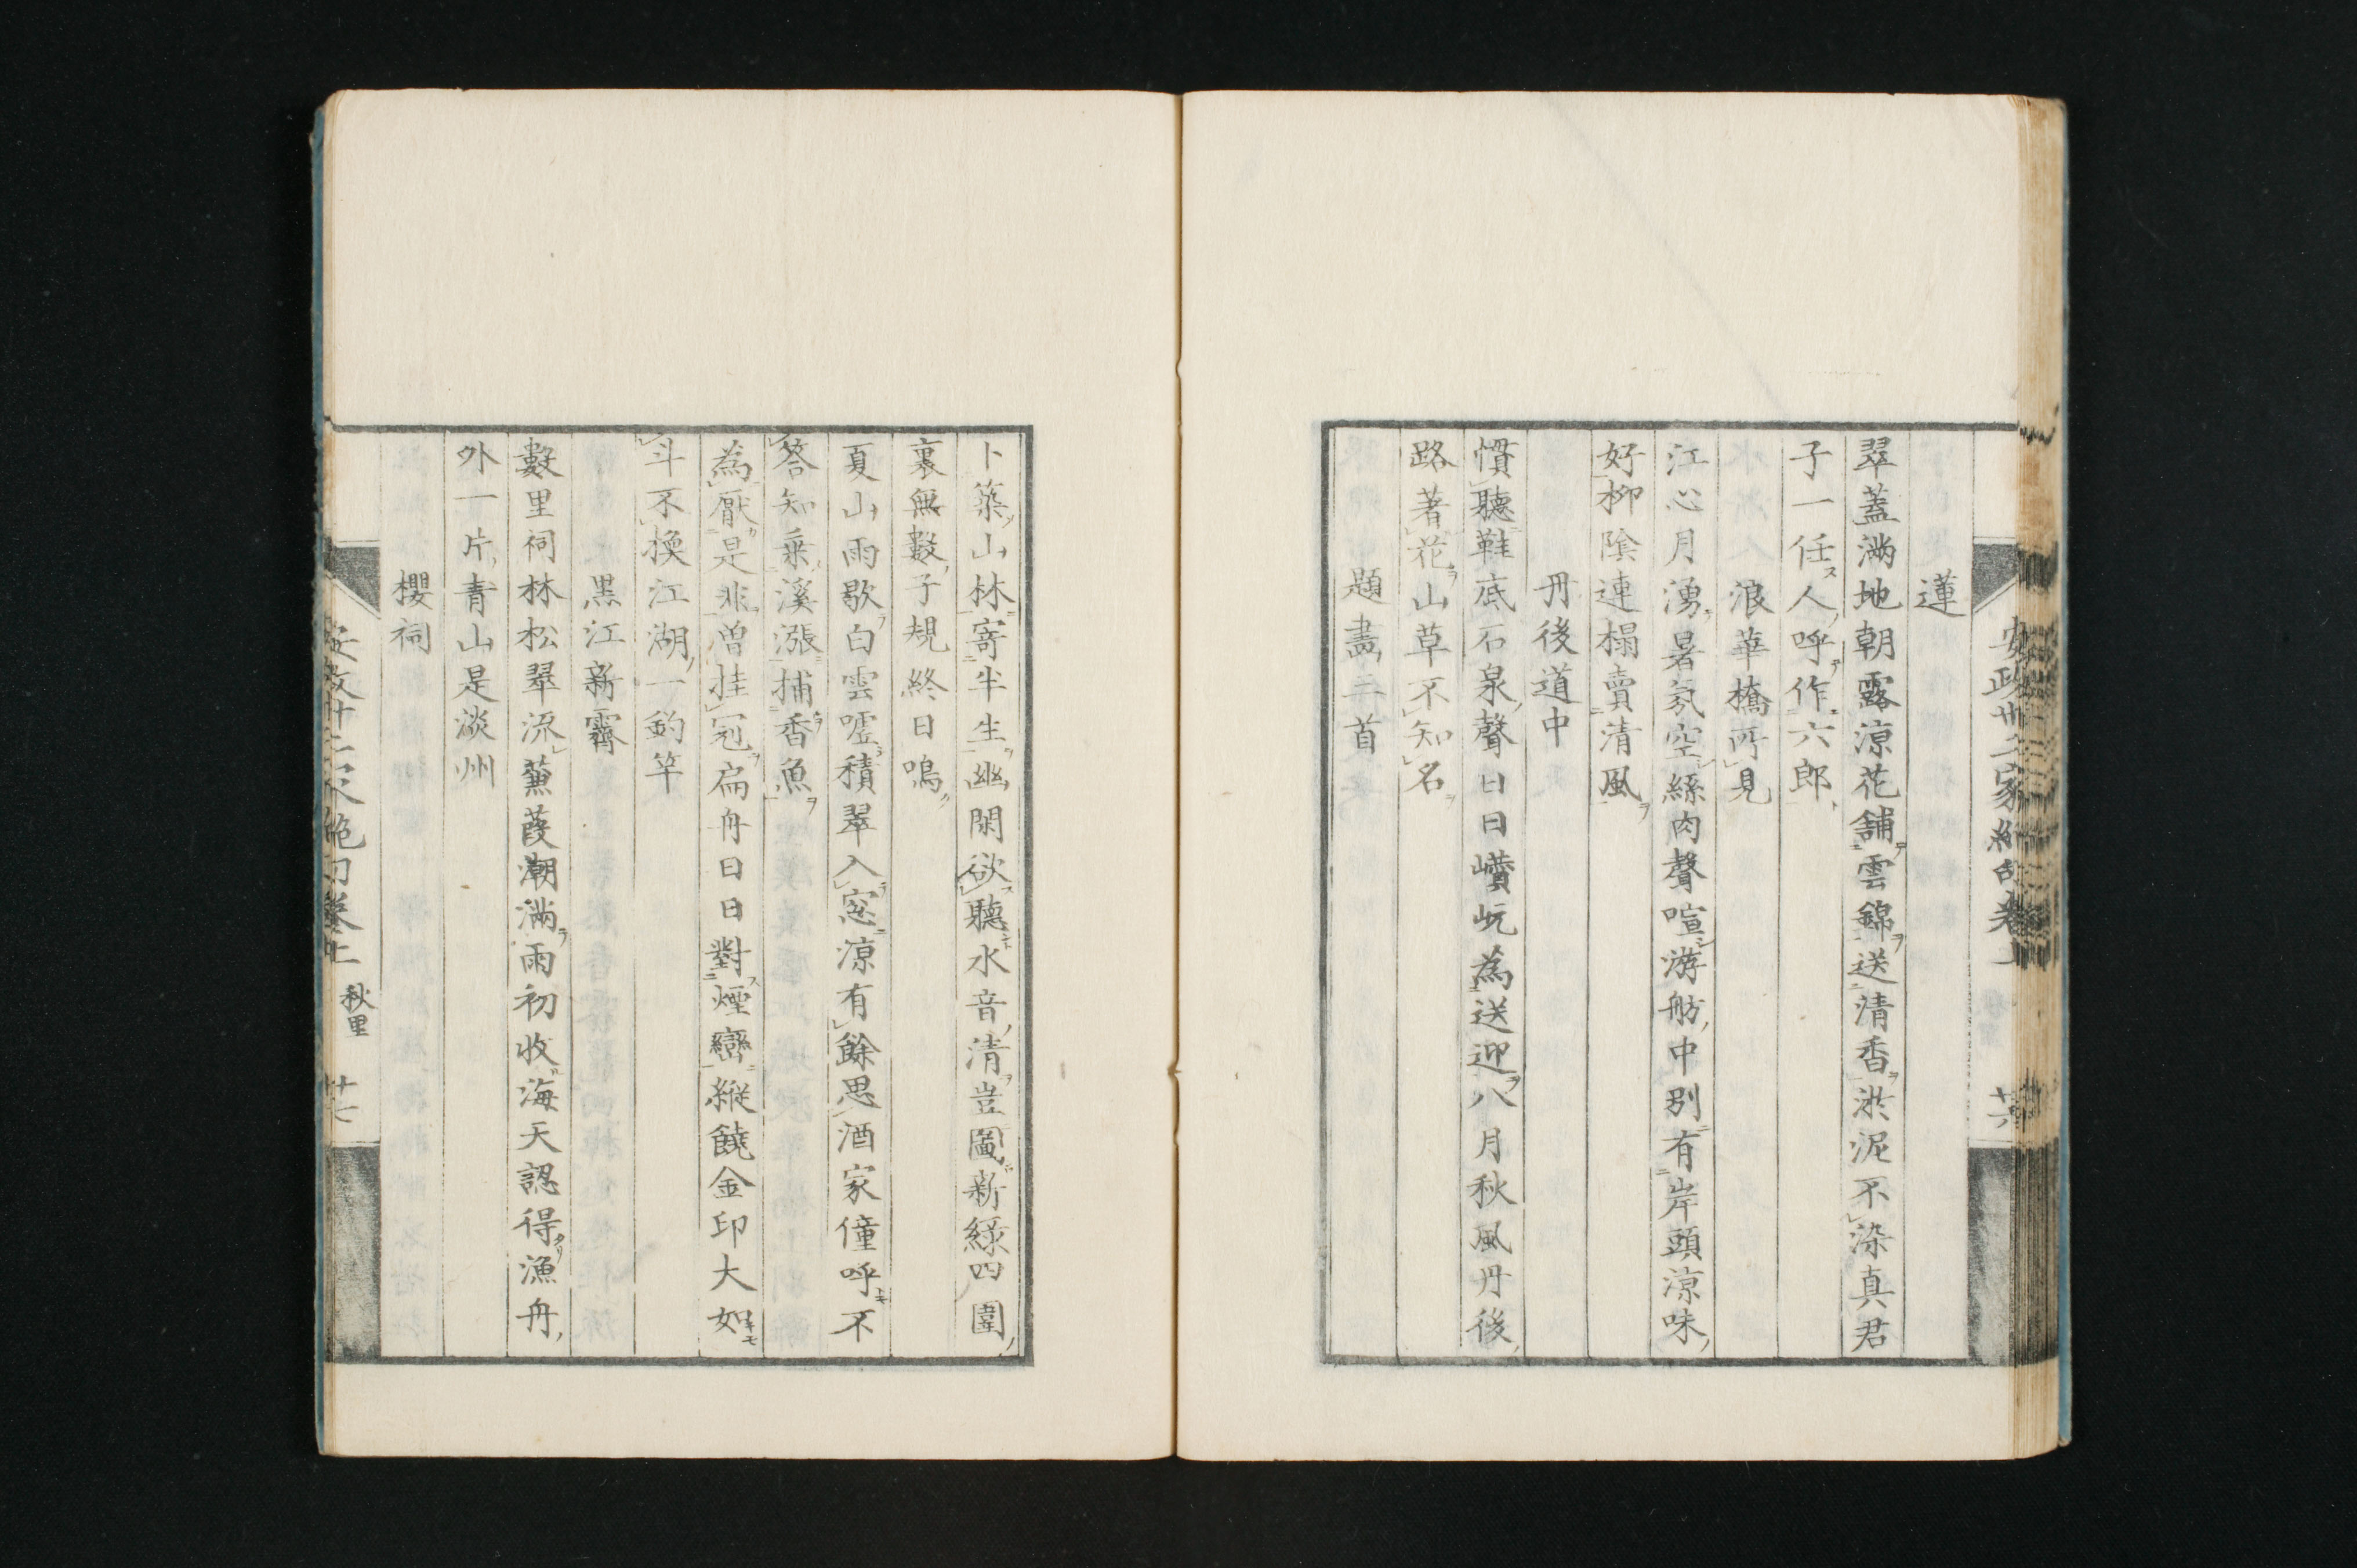 安政卅二家絶句卷上 廿六
蓮
翠蓋滿地朝露涼花舖雲錦送清香淤泥不染真君
子一任人呼作六郎
浪華橋所見
江心月湧暑氛空絲肉聲喧游舫中別有岸頭涼味
好柳陰連榻賣清風
丹後道中
慣聽鞋底石泉聲日日巑岏為送迎八月秋風丹後
路著花山草不知名
題畫三首
卜築山林寄半生幽閑欲聽水音清豈圖新綠四圍
裏無數子規終日鳴
夏山雨歇白雲嘘積翠入窓涼有餘思酒家僮呼不
答知乘溪漲捕香魚
為厭是非曽挂冠扁舟日日對煙巒縱饒金印大如
斗不換江湖一釣竿
黒江新霽
數里祠林松翠流蒹葭潮滿雨初收海天認得漁舟
外一片青山是淡州
櫻祠
安政卅二家絶句卷上 秋里 廿七